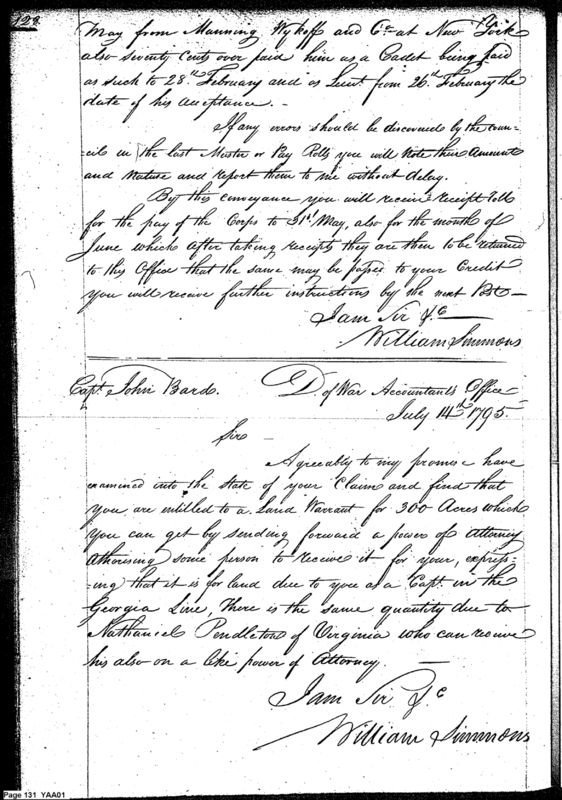 128.
May from Manning Wykoff and Co. at New York
also seventy Cents over paid him as a Cadet being paid
as such to 28th February and as Lieut. from 26th February the
date of his acceptance. -
If any errors should be discovered by the coun-
-cils in the last Muster or Pay Rolls you will Note their Amount
and Nature and report them to me without delay.
By this conveyance you will receive receipt Rolls
for the pay of the Corps to 31st May, also for the month of
June which after taking receipts they are then to be returned
to this Office that the same may be passed to your Credit
you will receive further instructions by the next Post -
I am Sir &c
William Simmons
Capt. John Bard. D. of War Accountants Office
July 14th 1795.
Sir -
Agreeably to my promise have
examined into the state of your Claim and find that
you are entitled to a Land Warrant for 300 Acres which
you can get by sending forward a power of Attorney
Athorising some person to receive it for your, express-
-ing that it is for land due to you as a Capt in the
Georgia Line, There is the same quantity due to
Nathaniel Pendleton of Virginia who can receive
his also on a like power of Attorney. -
I am Sir &c
William Simmons
Page 131 YAA01